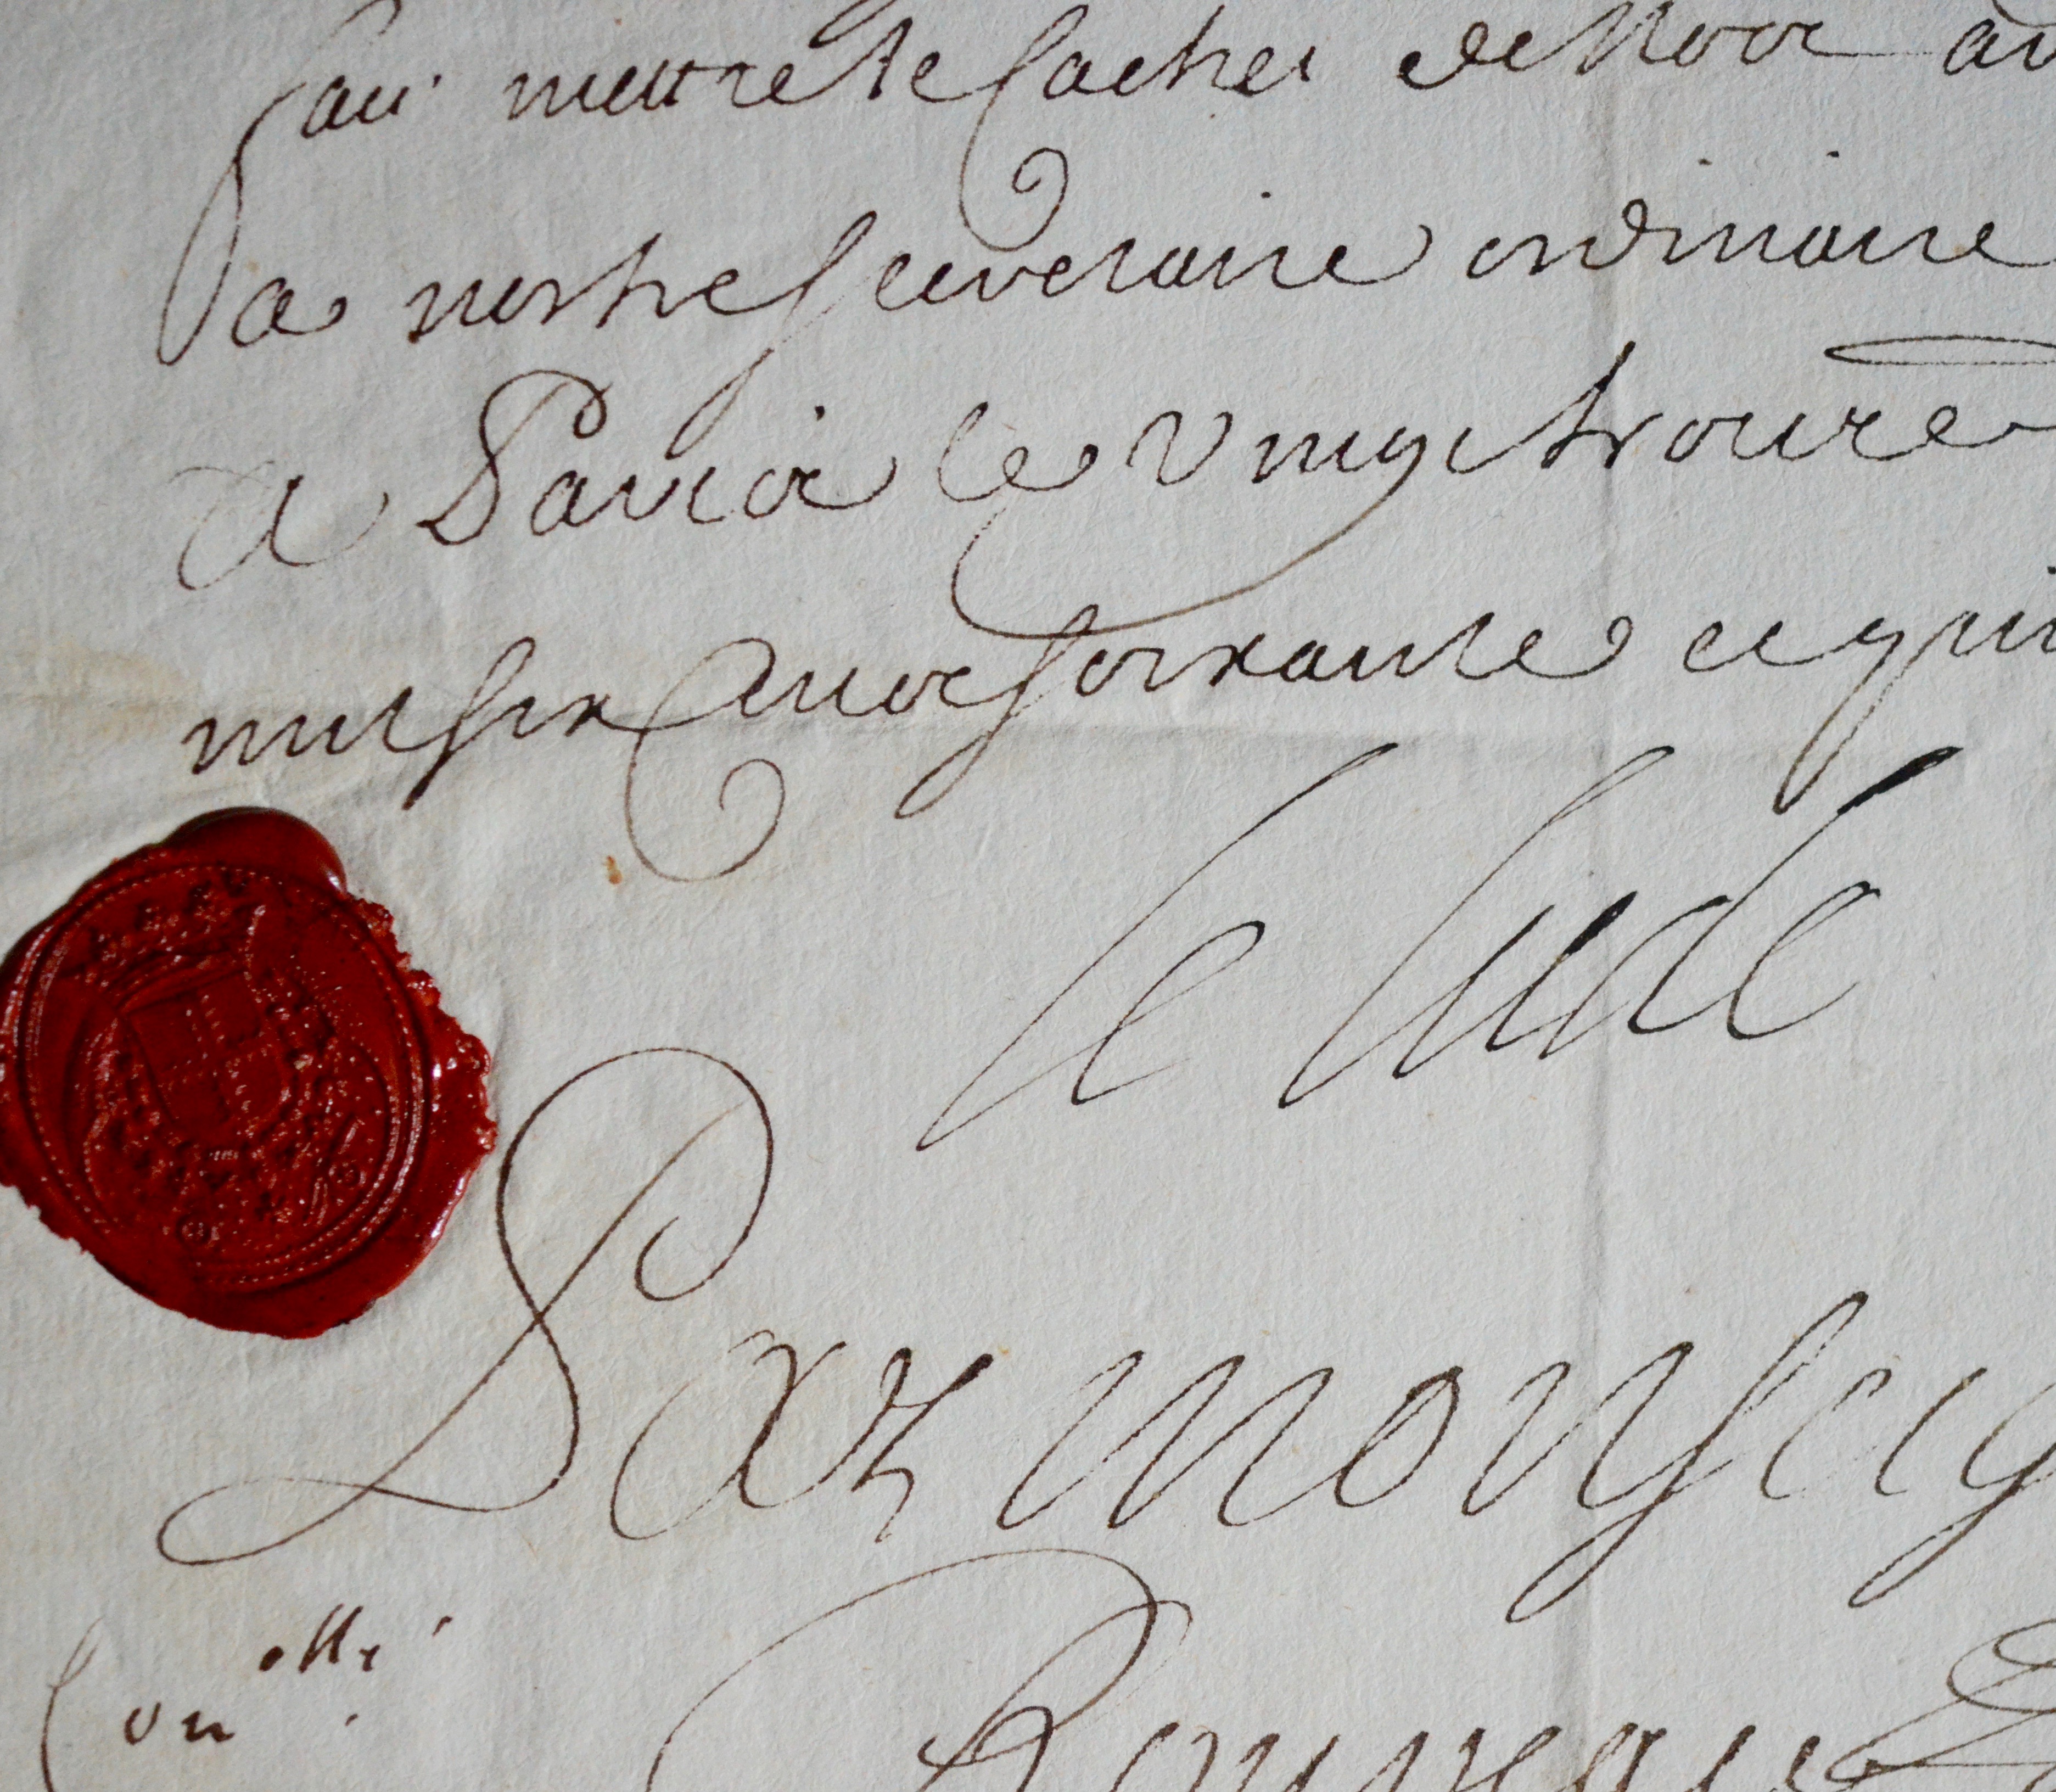 fait mettre le cachet de nos ar
a nostre secretaire ordinaire
a Paris le vingt troisie
mil six cent soixante et qui
le lude
Par monseig